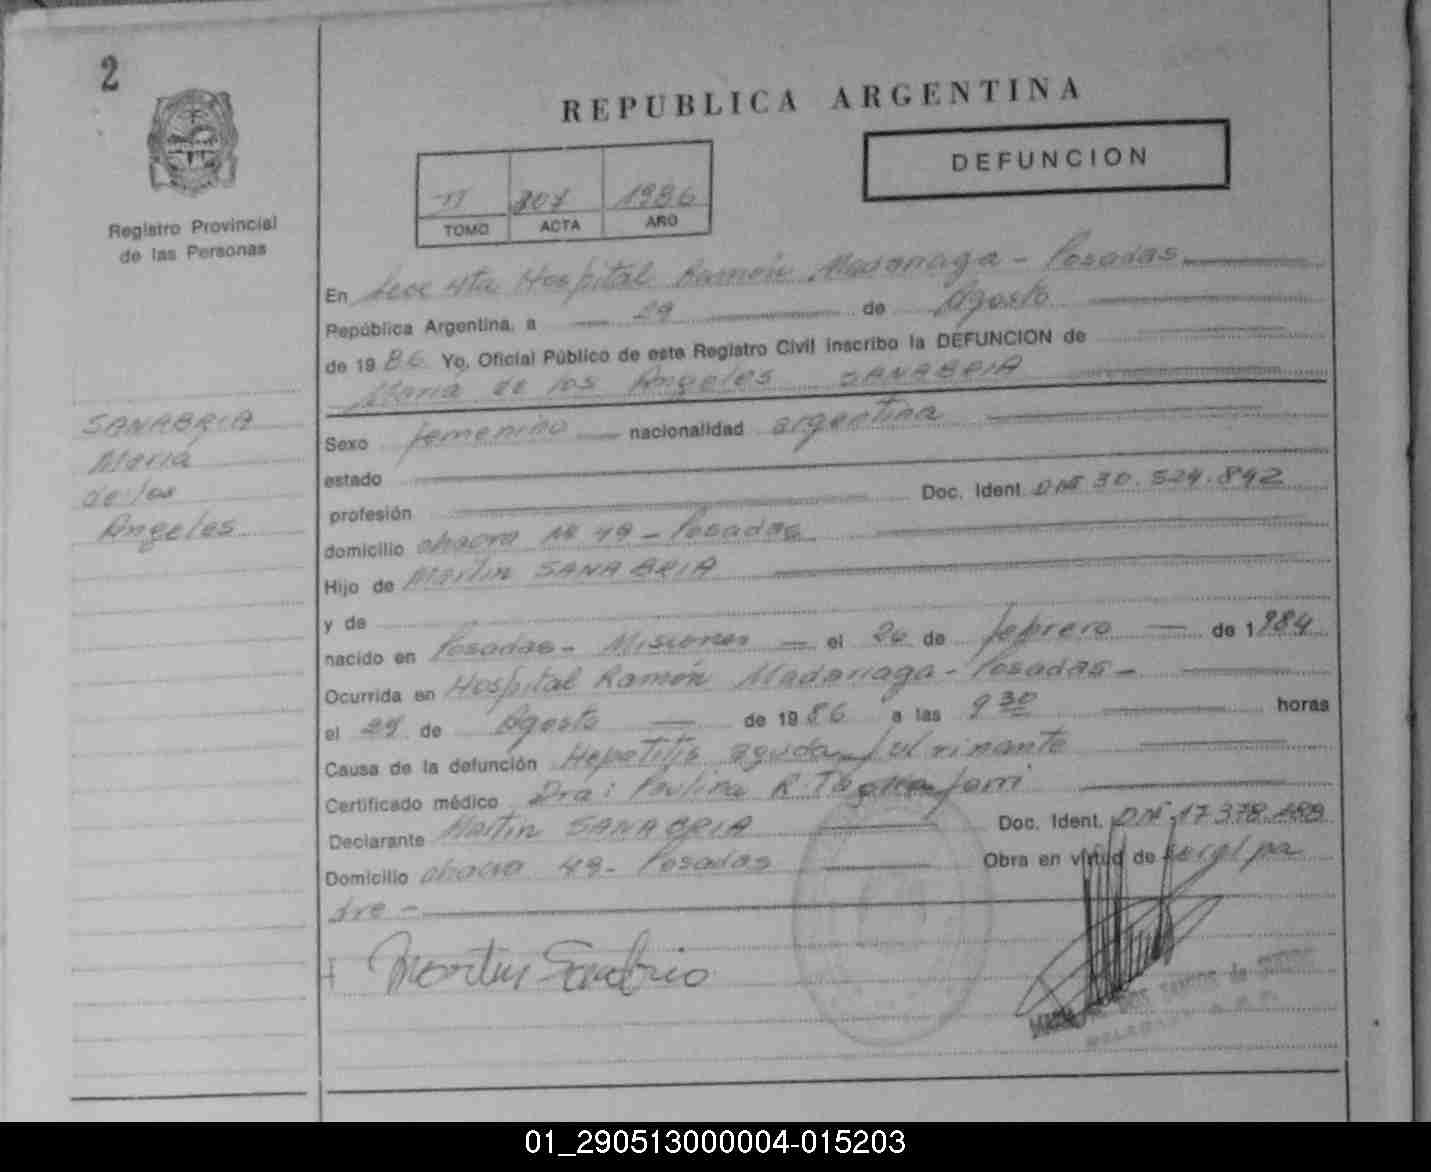 2
REPUBLICA ARGENTINA
DEFUNCION
Registro Provincial
de las Personas
II 207 1986
TOMO ACTA AÑO
En Secc 4ta Hospital Ramón Madariaga - Posadas
República Argentina, a 29 de Agosto
de 1986 Yo, Oficial Público de este Registro Civil inscribo la DEFUNCION de
Maria de los Angeles SANABRIA
SANABRIA
Maria
de los
Angeles
Sexo femenino nacionalidad argentina
estado
profesión Doc. Ident. DNI 30.524.842
domicilio chacra Nº 49 - Posadas
Hijo de Martin SANABRIA
y de
nacido en Posadas - Misiones el 26 de febrero de 1984
Ocurrida en Hospital Ramón Madariaga - Posadas -
el 29 de Agosto de 1986 a las 9 30 horas
Causa de la defunción Hepatitis aguda fulminante
Certificado médico Dra: Paulina R.
Declarante Martin SANABRIA Doc. Ident. DNI 17.378.188
Domicilio chacra 49 - Posadas Obra en virtud de ser el pa
dre -
Martin Sanabria
DOS SANTOS de
01_290513000004-015203